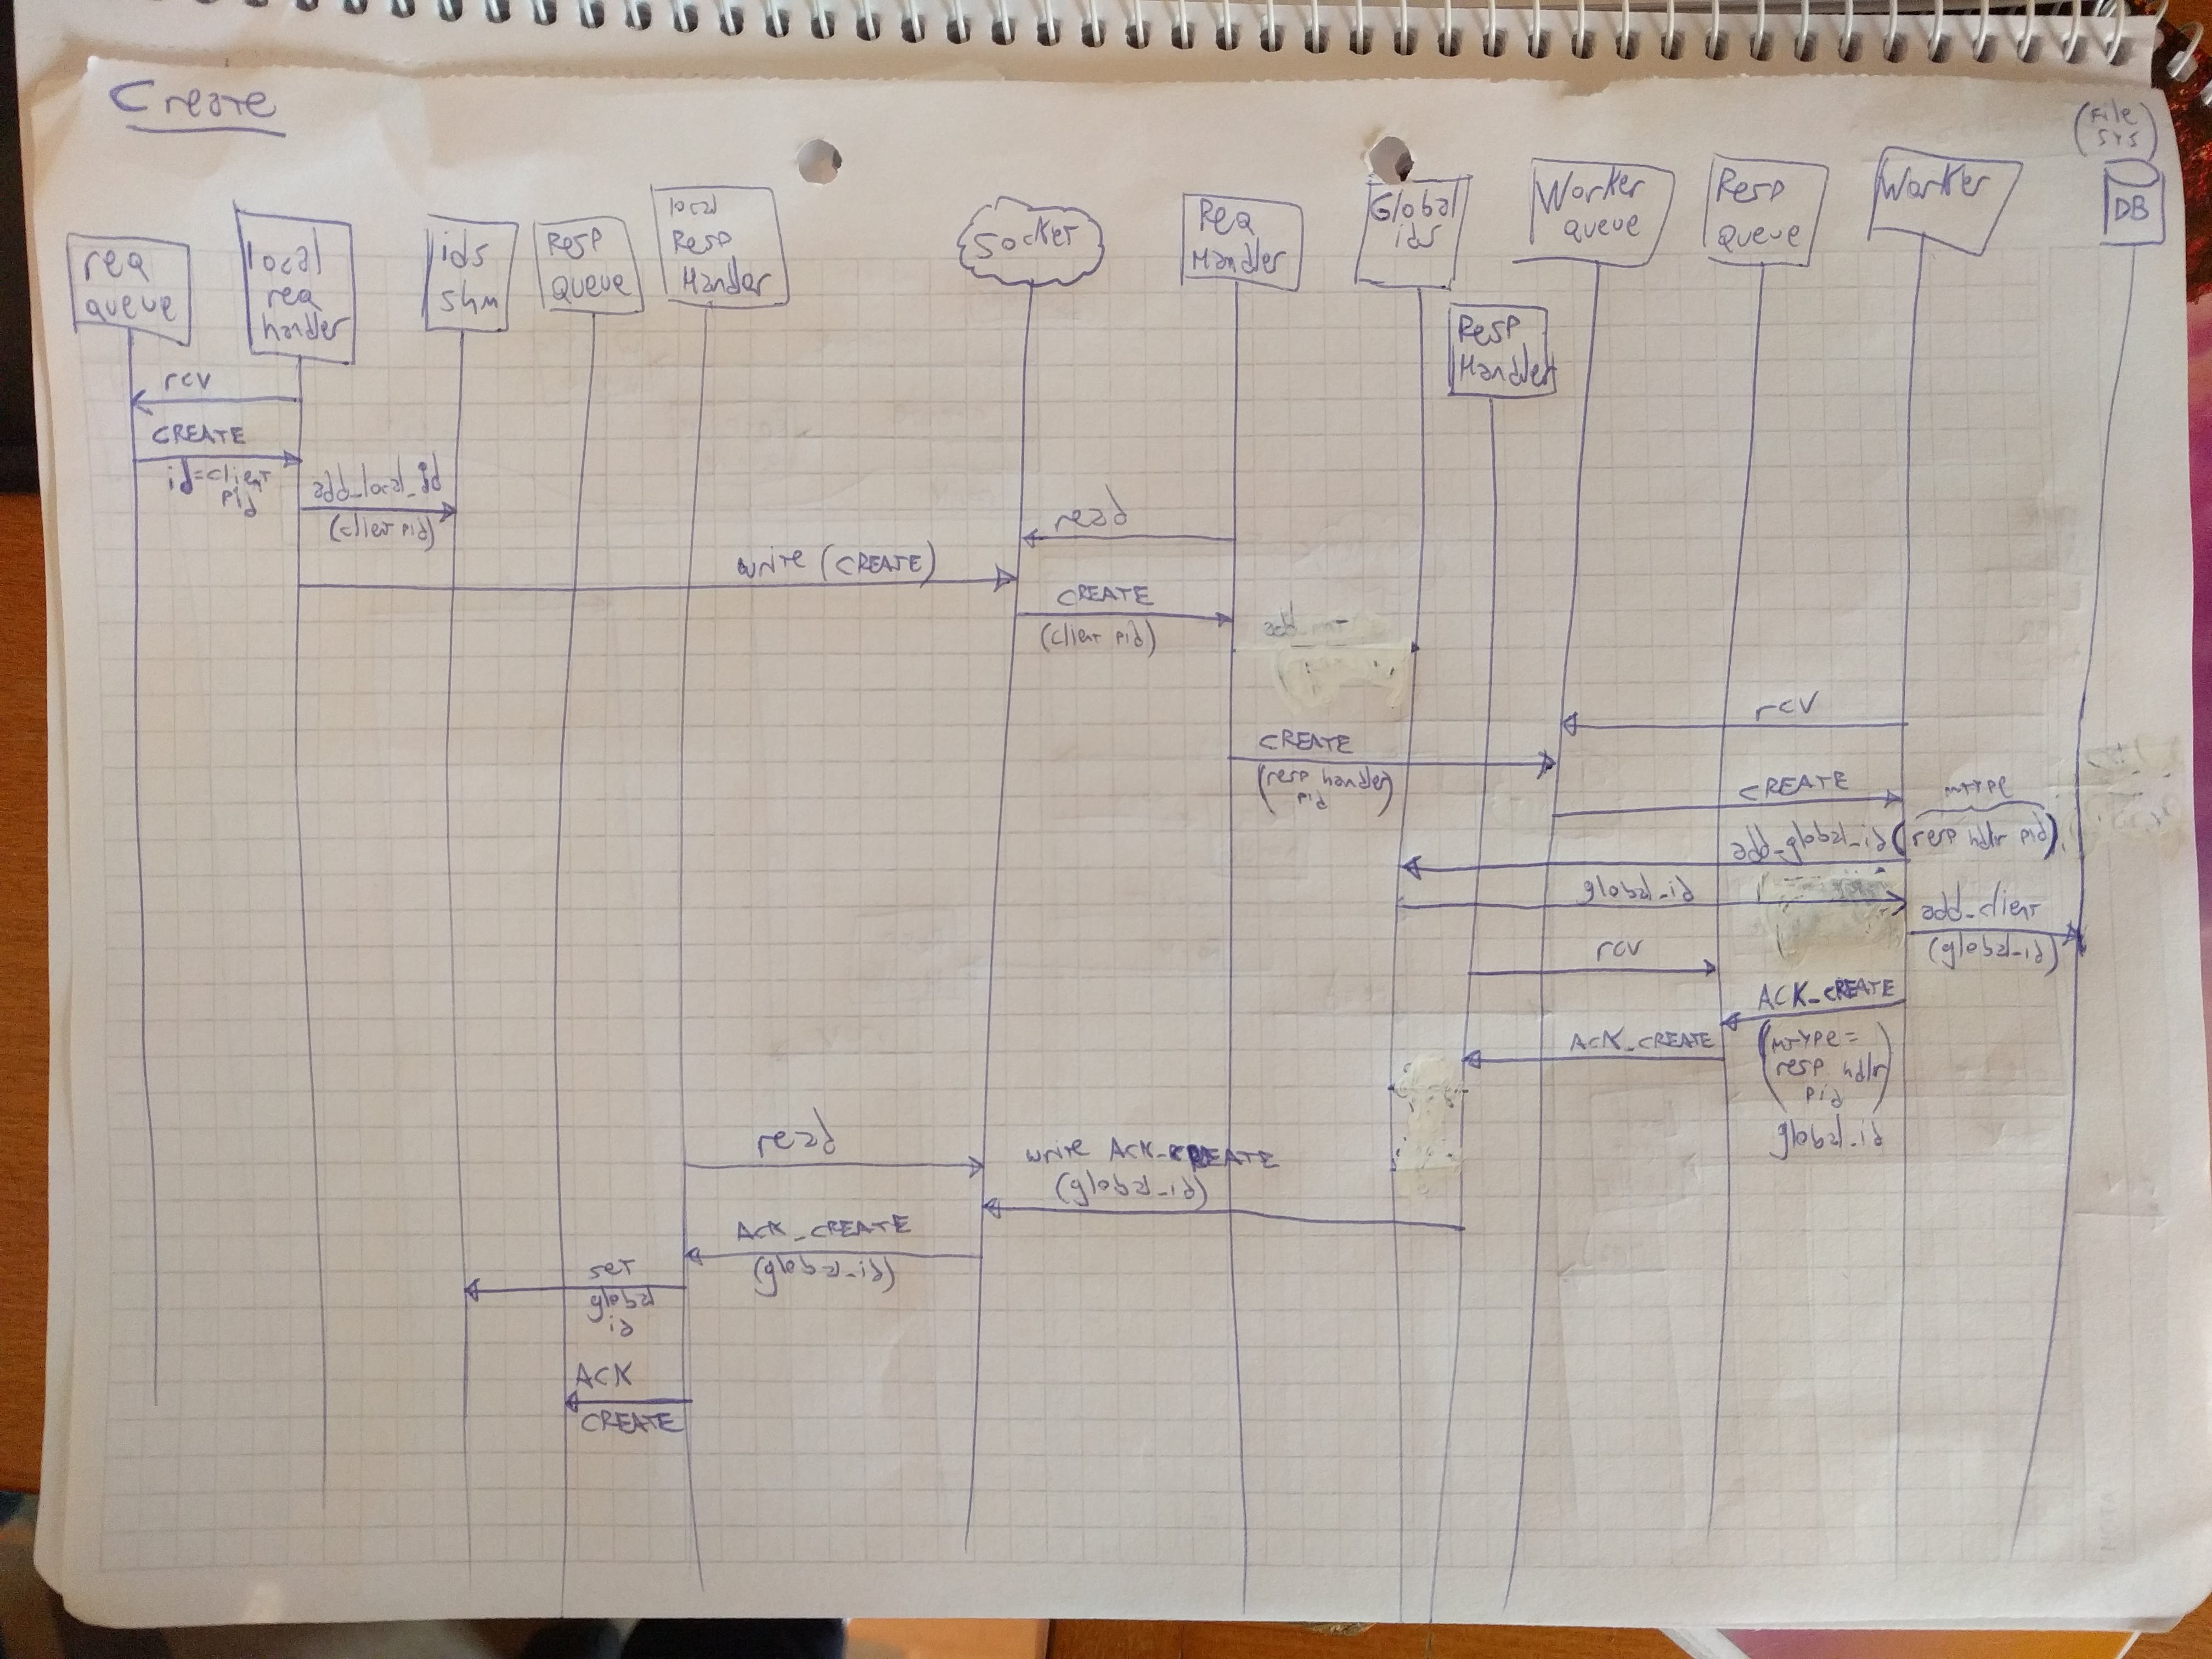 Create
(File
sys)
req
queue
local
req
handler
ids
shm
Resp
Queue
local
Resp
Handler
Socket
Req
Handler
Global
ids
Resp
Handler
Worker
queue
Resp
Queue
Worker
DB
rcv
CREATE
id=client
pid
add_local_id
(client pid)
read
write (CREATE)
CREATE
(client pid)
rcv
CREATE
(resp handler
pid)
CREATE
mtype
add_global_id (resp hdlr pid)
global_id
add_client
(global_id)
rcv
ACK_CREATE
ACK_CREATE
(mtype=
resp hdlr
pid)
global_id
read
write ACK_CREATE
(global_id)
ACK_CREATE
(global_id)
set
global
id
ACK
CREATE